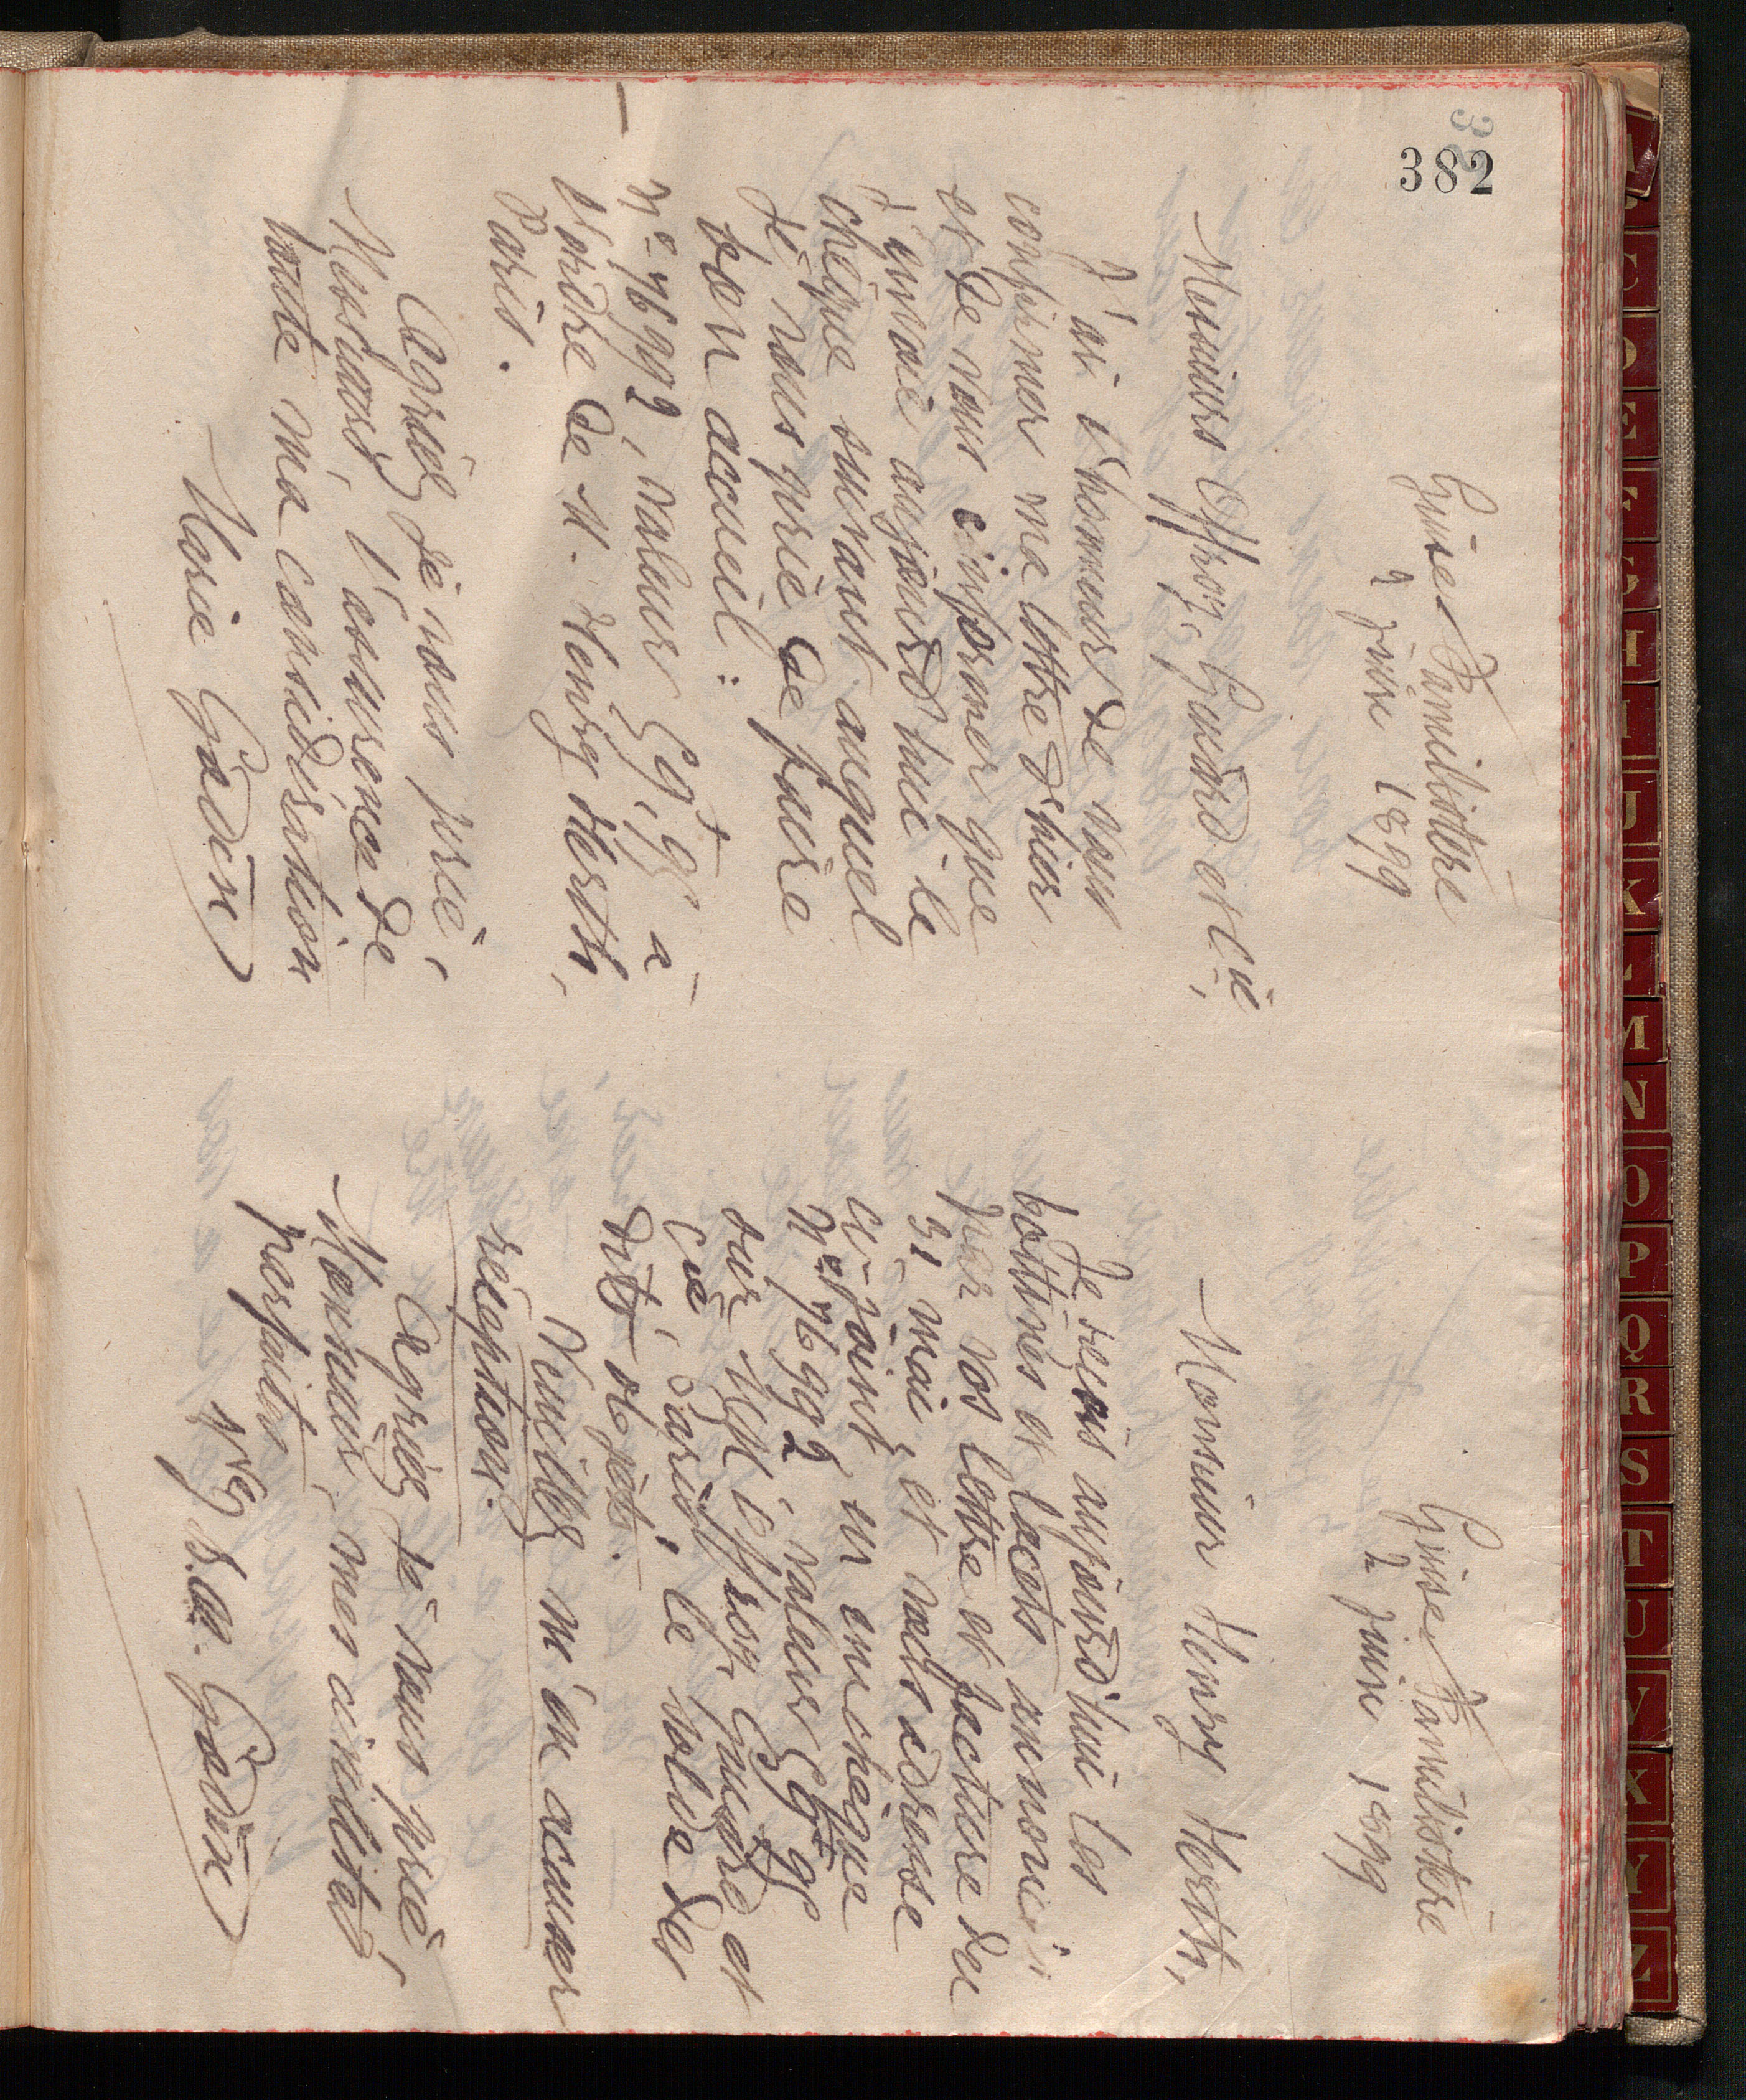 382
Guise Familistère
2 juin 1899
Messieurs Offroy, Guiard et Cie,
J'ai l'honneur de vous
confirmer ma lettre d'hier
et de vous informer que
j'envoie aujourd'hui le
chèque suivant auquel
je vous prie de faire
bon accueil :
No 76992, valeur 69f,95 à
l'ordre de M. Henry Herth,
Paris.
Agréez je vous prie,
Messieurs, l'assurance de
toute ma considération
Marie Godin
Guise Familistère
2 juin 1899
Monsieur Henry Herth,
Je reçois aujourd'hui les
bottines et lacets annoncés
par vos lettre et facture du
31 mai, et vous adresse
ci-joint un chèque
No 76992 valeur
sur MM Offroy Guiard et
Cie Paris, le solde des
dits objets.
Veuillez m'en accuser
réception.
Agréez je vous prie,
Monsieur, mes civilités
parfaites
Vve J.Bte. Godin
A
C
D
E
F
G
H
I
J
K
L
M
N
O
P
Q
R
S
T
U
V
X
Y
Z